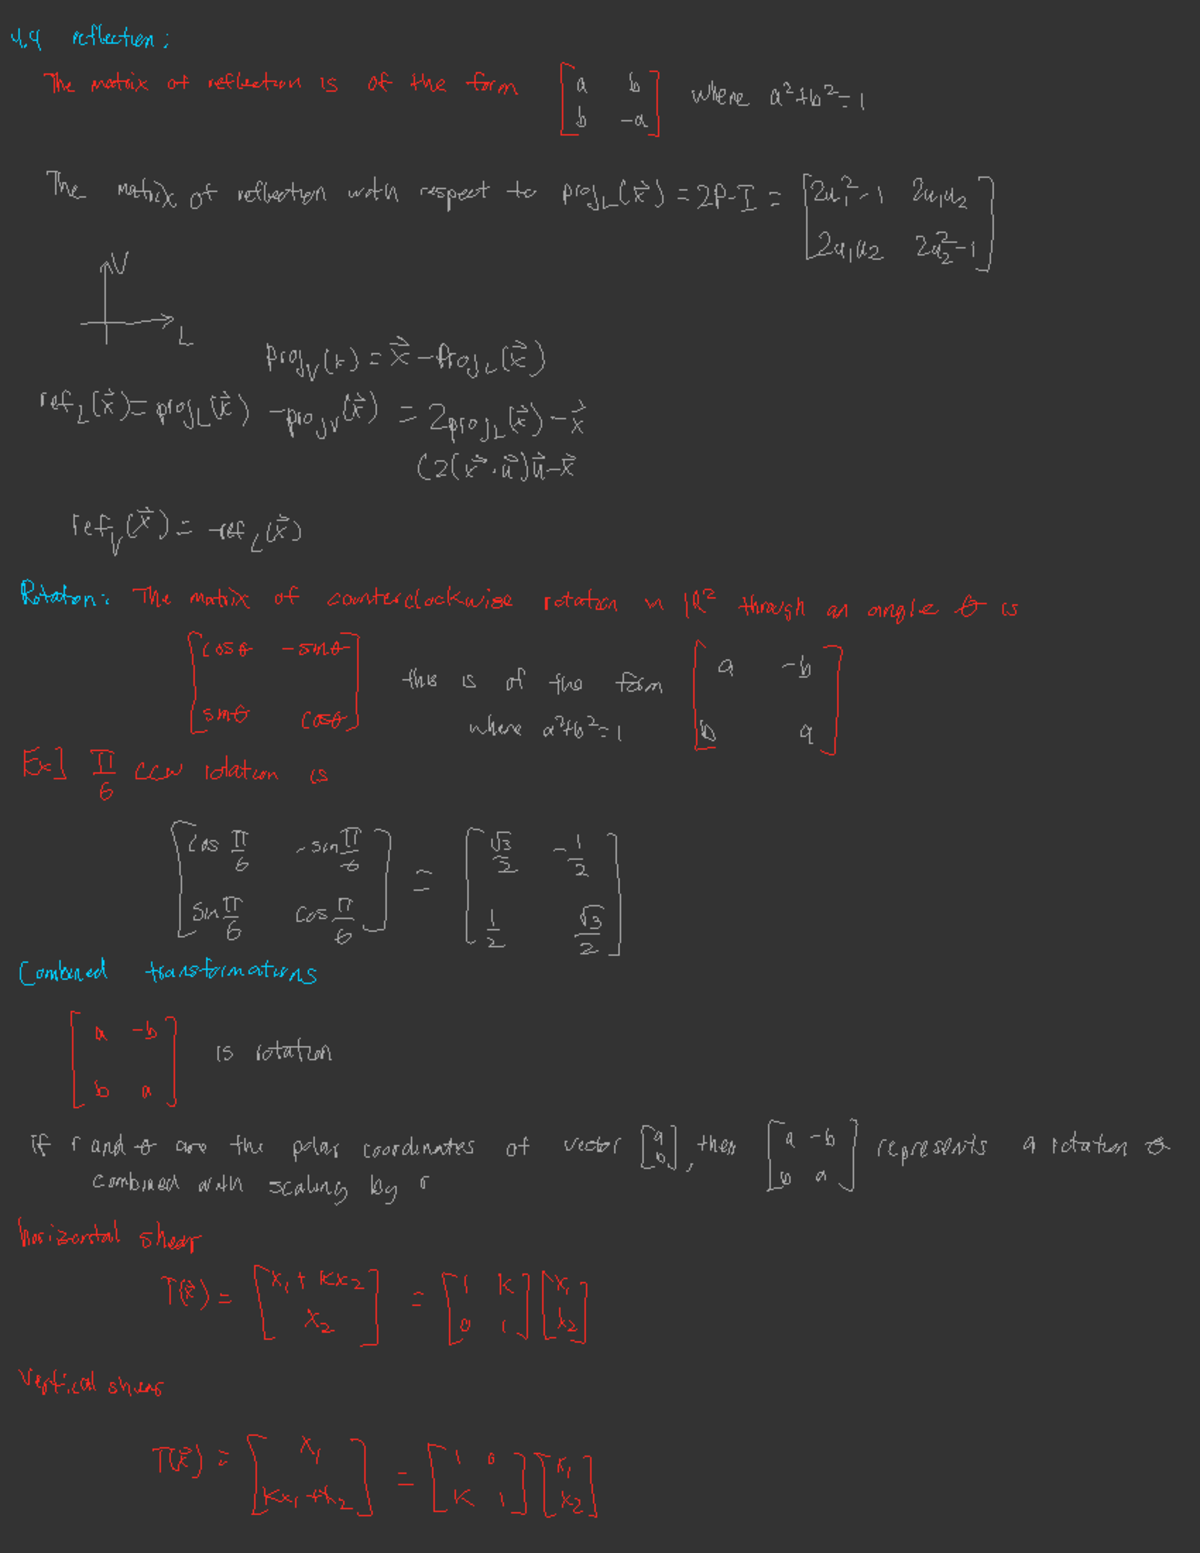 4.4 reflection:
The matrix of reflection is of the form [a b; b -a] where a²+b²=1
The matrix of reflection with respect to proj_L(x⃗) = 2P-I = [2u₁²-1 2u₁u₂; 2u₁u₂ 2u₂²-1]
V
L
proj_V(x) = x⃗ - proj_L(x⃗)
ref_L(x⃗) = proj_L(x⃗) - proj_V(x⃗) = 2proj_L(x⃗) - x⃗
(2(x⃗·u⃗)u⃗-x⃗
ref_V(x⃗) = -ref_L(x⃗)
Rotation: The matrix of counterclockwise rotation in ℝ² through an angle θ is
[cosθ -sinθ; sinθ cosθ] this is of the form [a -b; b a]
where a²+b²=1
Ex] π/6 ccw rotation is
[cos π/6 -sin π/6; sin π/6 cos π/6] = [√3/2 -1/2; 1/2 √3/2]
Combined transformations
[a -b; b a] is rotation
if r and θ are the polar coordinates of vector [a; b], then [a -b; b a] represents a rotation θ
combined with scaling by r
horizontal shear
T(x⃗) = [x₁ + kx₂; x₂] = [1 k; 0 1][x₁; x₂]
Vertical shear
T(x⃗) = [x₁; kx₁+x₂] = [1 0; k 1][x₁; x₂]